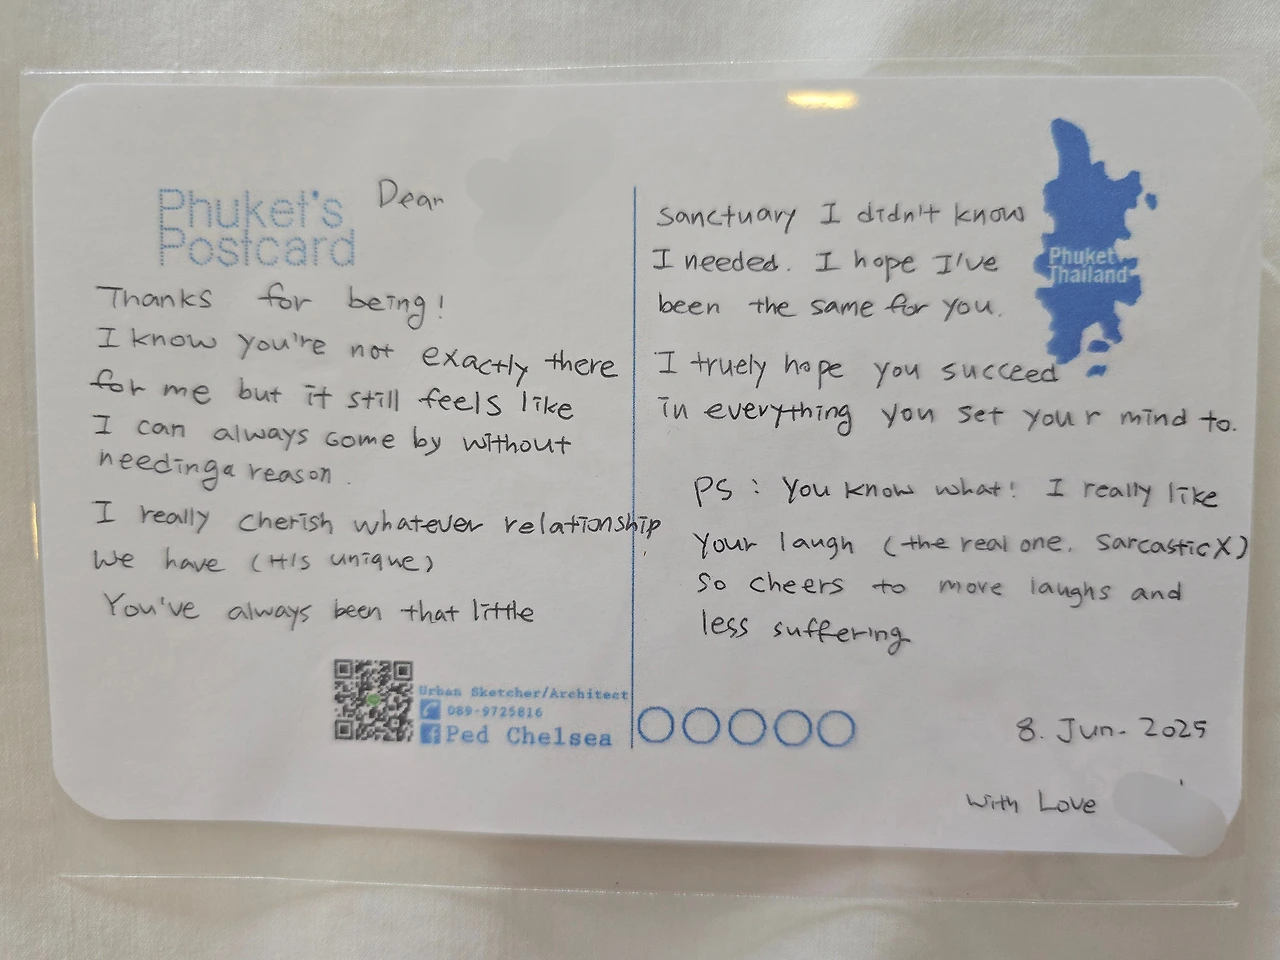 Phuket's
Postcard
Dear
Thanks for being!
I know you're not exactly there
for me but it still feels like
I can always come by without
needing a reason.
I really cherish whatever relationship
we have (It's unique)
You've always been that little
sanctuary I didn't know
I needed. I hope I've
been the same for you.
I truely hope you succeed
in everything you set your mind to.
PS : You know what! I really like
your laugh (the real one. sarcastic X)
so cheers to more laughs and
less suffering
8. Jun. 2025
with Love
Phuket
Thailand
Urban Sketcher/Architect
089-9725816
Ped Chelsea